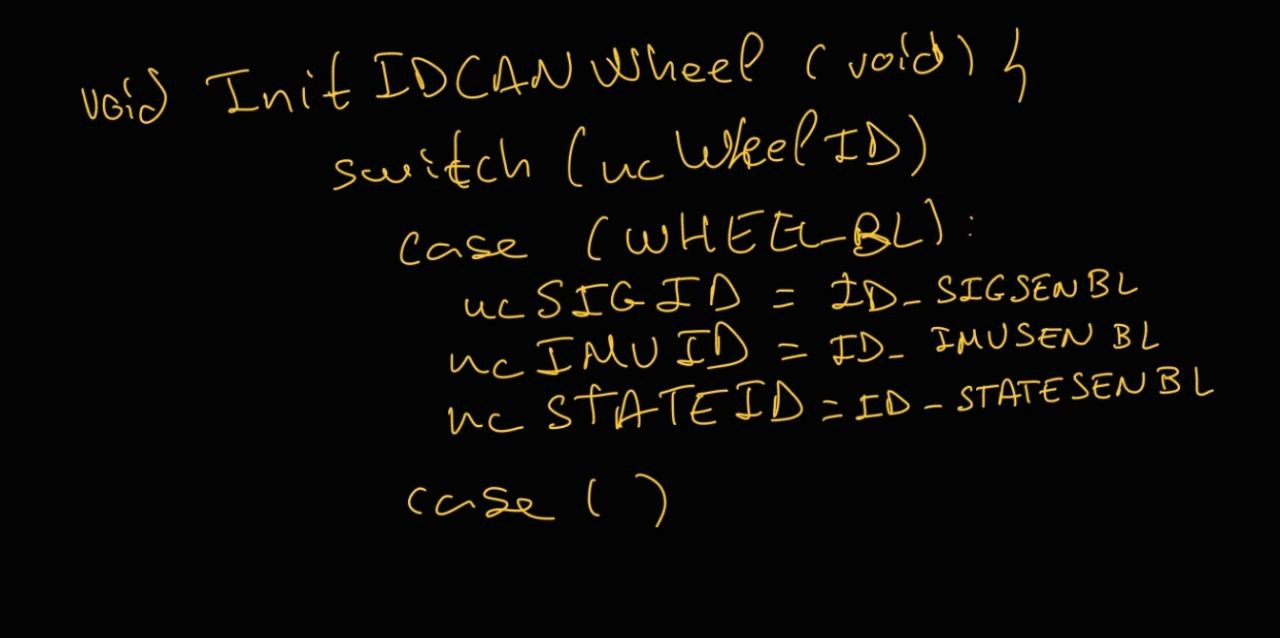 void InitIDCANWheel (void) {
switch (ucWheelID)
case (WHEEL_BL):
ucSIGID = ID_SIGSENBL
ucIMUID = ID_IMUSENBL
ucSTATEID = ID_STATESENBL
case ( )